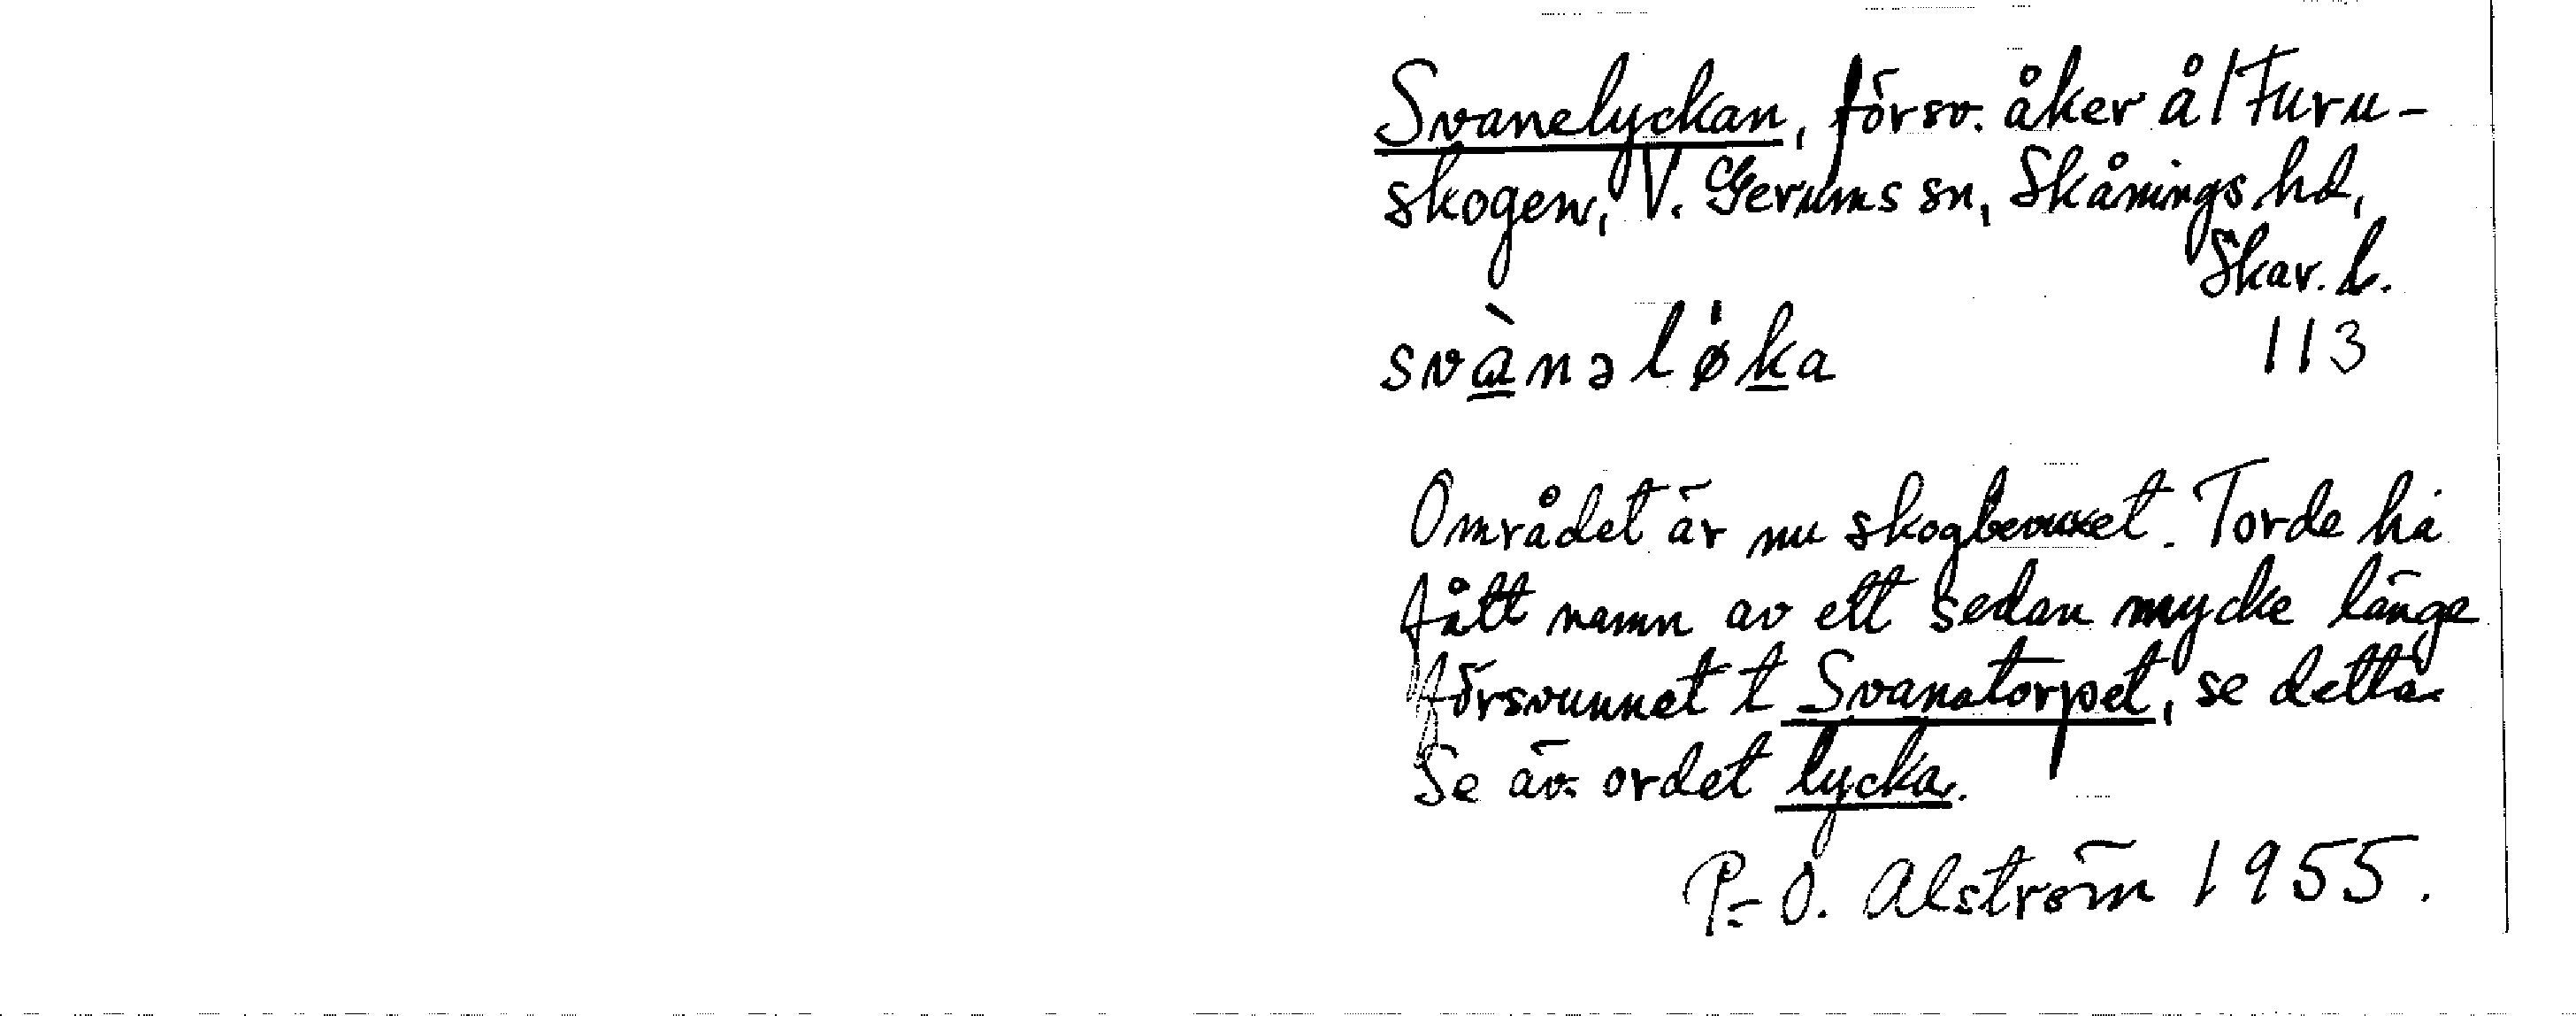 Svanelyckan, försv. åker å 1 Furu-
skogen, V. Gerums sn, Skånings hd,
Skar. l.
svànəlø̍ka 113
Området är nu skogbevuxet. Torde ha
fått namn av ett sedan mycke länge
försvunnet t Svanatorpet, se detta.
Se äv. ordet lycka.
P.-O. Alström 1955.